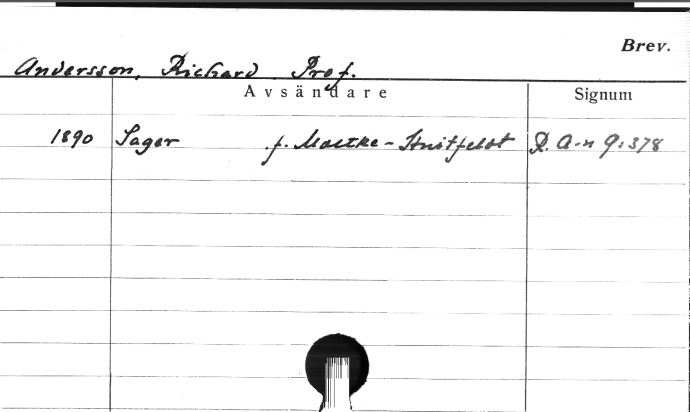 Brev.
Andersson, Richard Prof.
Avsändare Signum
1890 Sager f. Moltke-Huitfeldt R. A-n 9:378